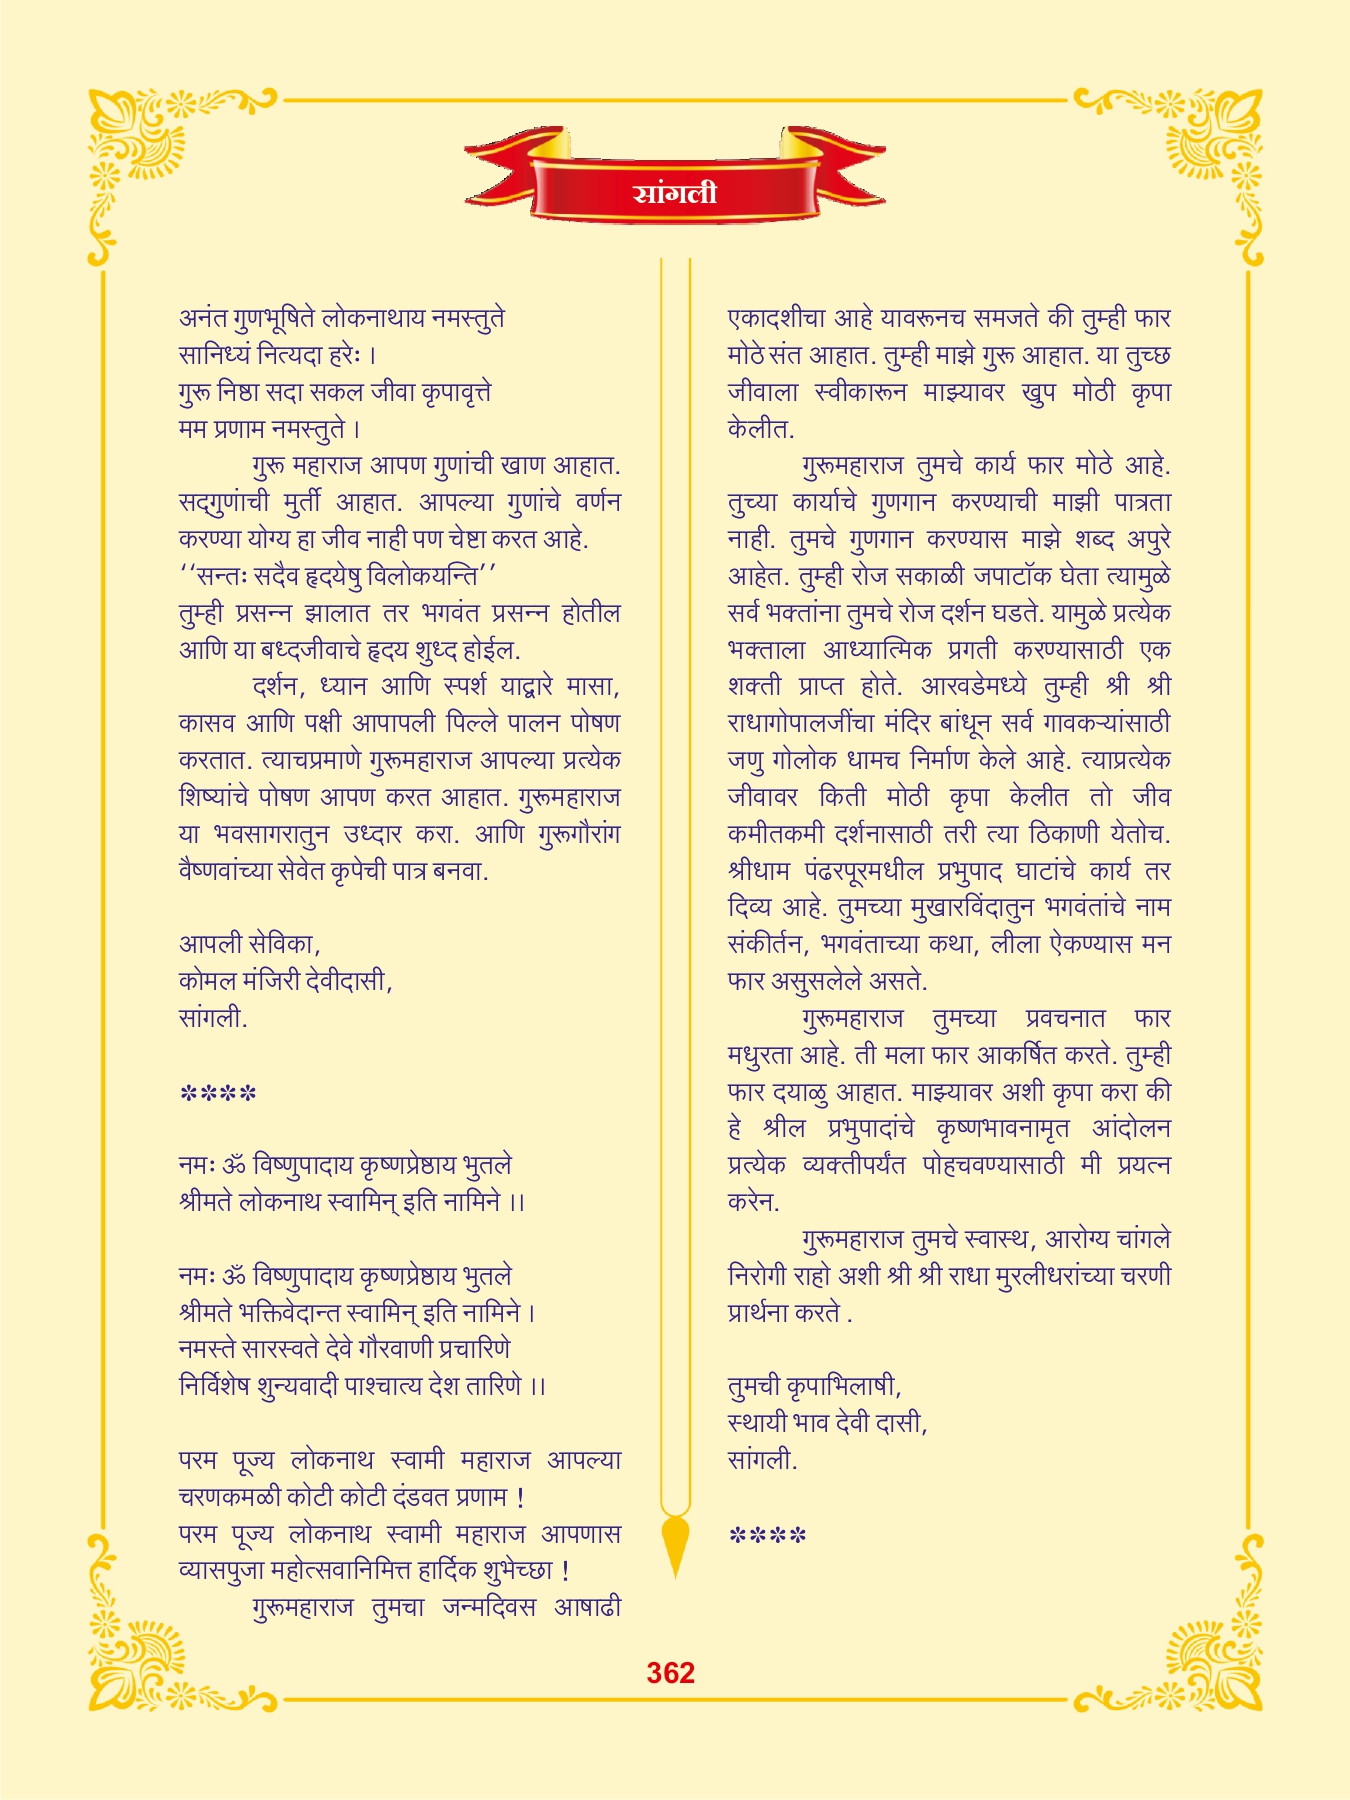 सांगली
अनंत गुणभूषिते लोकनाथाय नमस्तुते
सानिध्यं नित्यदा हरेः ।
गुरू निष्ठा सदा सकल जीवा कृपावृत्ते
मम प्रणाम नमस्तुते ।
गुरू महाराज आपण गुणांची खाण आहात.
सद्‌गुणांची मुर्ती आहात. आपल्या गुणांचे वर्णन
करण्या योग्य हा जीव नाही पण चेष्टा करत आहे.
‘‘सन्तः सदैव हृदयेषु विलोकयन्ति’’
तुम्ही प्रसन्न झालात तर भगवंत प्रसन्न होतील
आणि या बध्दजीवाचे हृदय शुध्द होईल.
दर्शन, ध्यान आणि स्पर्श याद्वारे मासा,
कासव आणि पक्षी आपापली पिल्ले पालन पोषण
करतात. त्याचप्रमाणे गुरूमहाराज आपल्या प्रत्येक
शिष्यांचे पोषण आपण करत आहात. गुरूमहाराज
या भवसागरातुन उध्दार करा. आणि गुरूगौरांग
वैष्णवांच्या सेवेत कृपेची पात्र बनवा.
आपली सेविका,
कोमल मंजिरी देवीदासी,
सांगली.
****
नमः ॐ विष्णुपादाय कृष्णप्रेष्ठाय भुतले
श्रीमते लोकनाथ स्वामिन् इति नामिने ।।
नमः ॐ विष्णुपादाय कृष्णप्रेष्ठाय भुतले
श्रीमते भक्तिवेदान्त स्वामिन् इति नामिने ।
नमस्ते सारस्वते देवे गौरवाणी प्रचारिणे
निर्विशेष शुन्यवादी पाश्चात्य देश तारिणे ।।
परम पूज्य लोकनाथ स्वामी महाराज आपल्या
चरणकमळी कोटी कोटी दंडवत प्रणाम !
परम पूज्य लोकनाथ स्वामी महाराज आपणास
व्यासपुजा महोत्सवानिमित्त हार्दिक शुभेच्छा !
गुरूमहाराज तुमचा जन्मदिवस आषाढी
एकादशीचा आहे यावरूनच समजते की तुम्ही फार
मोठे संत आहात. तुम्ही माझे गुरू आहात. या तुच्छ
जीवाला स्वीकारून माझ्यावर खुप मोठी कृपा
केलीत.
गुरूमहाराज तुमचे कार्य फार मोठे आहे.
तुच्या कार्याचे गुणगान करण्याची माझी पात्रता
नाही. तुमचे गुणगान करण्यास माझे शब्द अपुरे
आहेत. तुम्ही रोज सकाळी जपाटॉक घेता त्यामुळे
सर्व भक्तांना तुमचे रोज दर्शन घडते. यामुळे प्रत्येक
भक्ताला आध्यात्मिक प्रगती करण्यासाठी एक
शक्ती प्राप्त होते. आरवडेमध्ये तुम्ही श्री श्री
राधागोपालजींचा मंदिर बांधून सर्व गावकऱ्यांसाठी
जणु गोलोक धामच निर्माण केले आहे. त्याप्रत्येक
जीवावर किती मोठी कृपा केलीत तो जीव
कमीतकमी दर्शनासाठी तरी त्या ठिकाणी येतोच.
श्रीधाम पंढरपूरमधील प्रभुपाद घाटांचे कार्य तर
दिव्य आहे. तुमच्या मुखारविंदातुन भगवंतांचे नाम
संकीर्तन, भगवंताच्या कथा, लीला ऐकण्यास मन
फार असुसलेले असते.
गुरूमहाराज तुमच्या प्रवचनात फार
मधुरता आहे. ती मला फार आकर्षित करते. तुम्ही
फार दयाळु आहात. माझ्यावर अशी कृपा करा की
हे श्रील प्रभुपादांचे कृष्णभावनामृत आंदोलन
प्रत्येक व्यक्तीपर्यंत पोहचवण्यासाठी मी प्रयत्न
करेन.
गुरूमहाराज तुमचे स्वास्थ, आरोग्य चांगले
निरोगी राहो अशी श्री श्री राधा मुरलीधरांच्या चरणी
प्रार्थना करते .
तुमची कृपाभिलाषी,
स्थायी भाव देवी दासी,
सांगली.
****
362